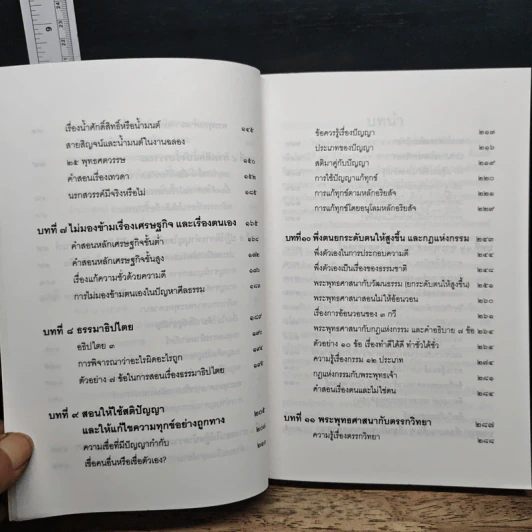 เรื่องน้ำศักดิ์สิทธิ์หรือน้ำมนต์ ๑๔๕
สายสิญจน์และน้ำมนต์ในงานฉลอง
๒๕ พุทธศตวรรษ ๑๕๐
คำสอนเรื่องเทวดา ๑๕๒
นรกสวรรค์มีจริงหรือไม่
บทที่ ๗ ไม่มองข้ามเรื่องเศรษฐกิจ และเรื่องตนเอง ๑๖๕
คำสอนหลักเศรษฐกิจขั้นต่ำ ๑๖๘
คำสอนหลักเศรษฐกิจขั้นสูง
เรื่องแก้ความชั่วด้วยความดี
การไม่มองข้ามตนเองในปัญหาศีลธรรม
บทที่ ๘ ธรรมาธิปไตย ๑๘๙
อธิปไตย ๓
การพิจารณาว่าอะไรผิดอะไรถูก
ตัวอย่าง ๗ ข้อในการสอนเรื่องธรรมาธิปไตย
บทที่ ๙ สอนให้ใช้สติปัญญา ๒๐๕
และให้แก้ไขความทุกข์อย่างถูกทาง
ความเชื่อที่มีปัญญากำกับ
เชื่อคนอื่นหรือเชื่อตัวเอง?
ข้อควรรู้เรื่องปัญญา ๒๑๓
ประเภทของปัญญา ๒๑๖
สติมาคู่กับปัญญา ๒๑๙
การใช้ปัญญาแก้ทุกข์ ๒๒๐
การแก้ทุกข์ตามหลักอริยสัจ ๒๒๑
การแก้ทุกข์โดยอนุโลมหลักอริยสัจ ๒๒๙
บทที่๑๐ พึ่งตนยกระดับตนให้สูงขึ้น และกฏแห่งกรรม ๒๔๓
พึ่งตัวเองในการประกอบความดี ๒๔๔
พึ่งตัวเองเป็นเรื่องของธรรมชาติ ๒๔๘
พระพุทธศาสนากับวัฒนธรรม (ยกระดับตนให้สูงขึ้น) ๒๕๑
พระพุทธศาสนาสอนไม่ให้อ้อนวอน ๒๖๐
เรื่องการอ้อนวอนของ ๓ กวี ๒๖๑
พระพุทธศาสนากับกฏแห่งกรรม และคำอธิบาย ๗ ข้อ ๒๖๔
ตัวอย่าง ๑๐ ข้อ เรื่องทำดีได้ดี ทำชั่วได้ชั่ว
ความรู้เรื่องกรรม ๑๒ ประเภท ๒๗๔
กฏแห่งกรรมกับพระพุทธเจ้า
คำสอนเรื่องตนและไม่ใช่ตน
บทที่ ๑๑ พระพุทธศาสนากับตรรกวิทยา ๒๘๗
ความรู้เรื่องตรรกวิทยา ๒๘๘